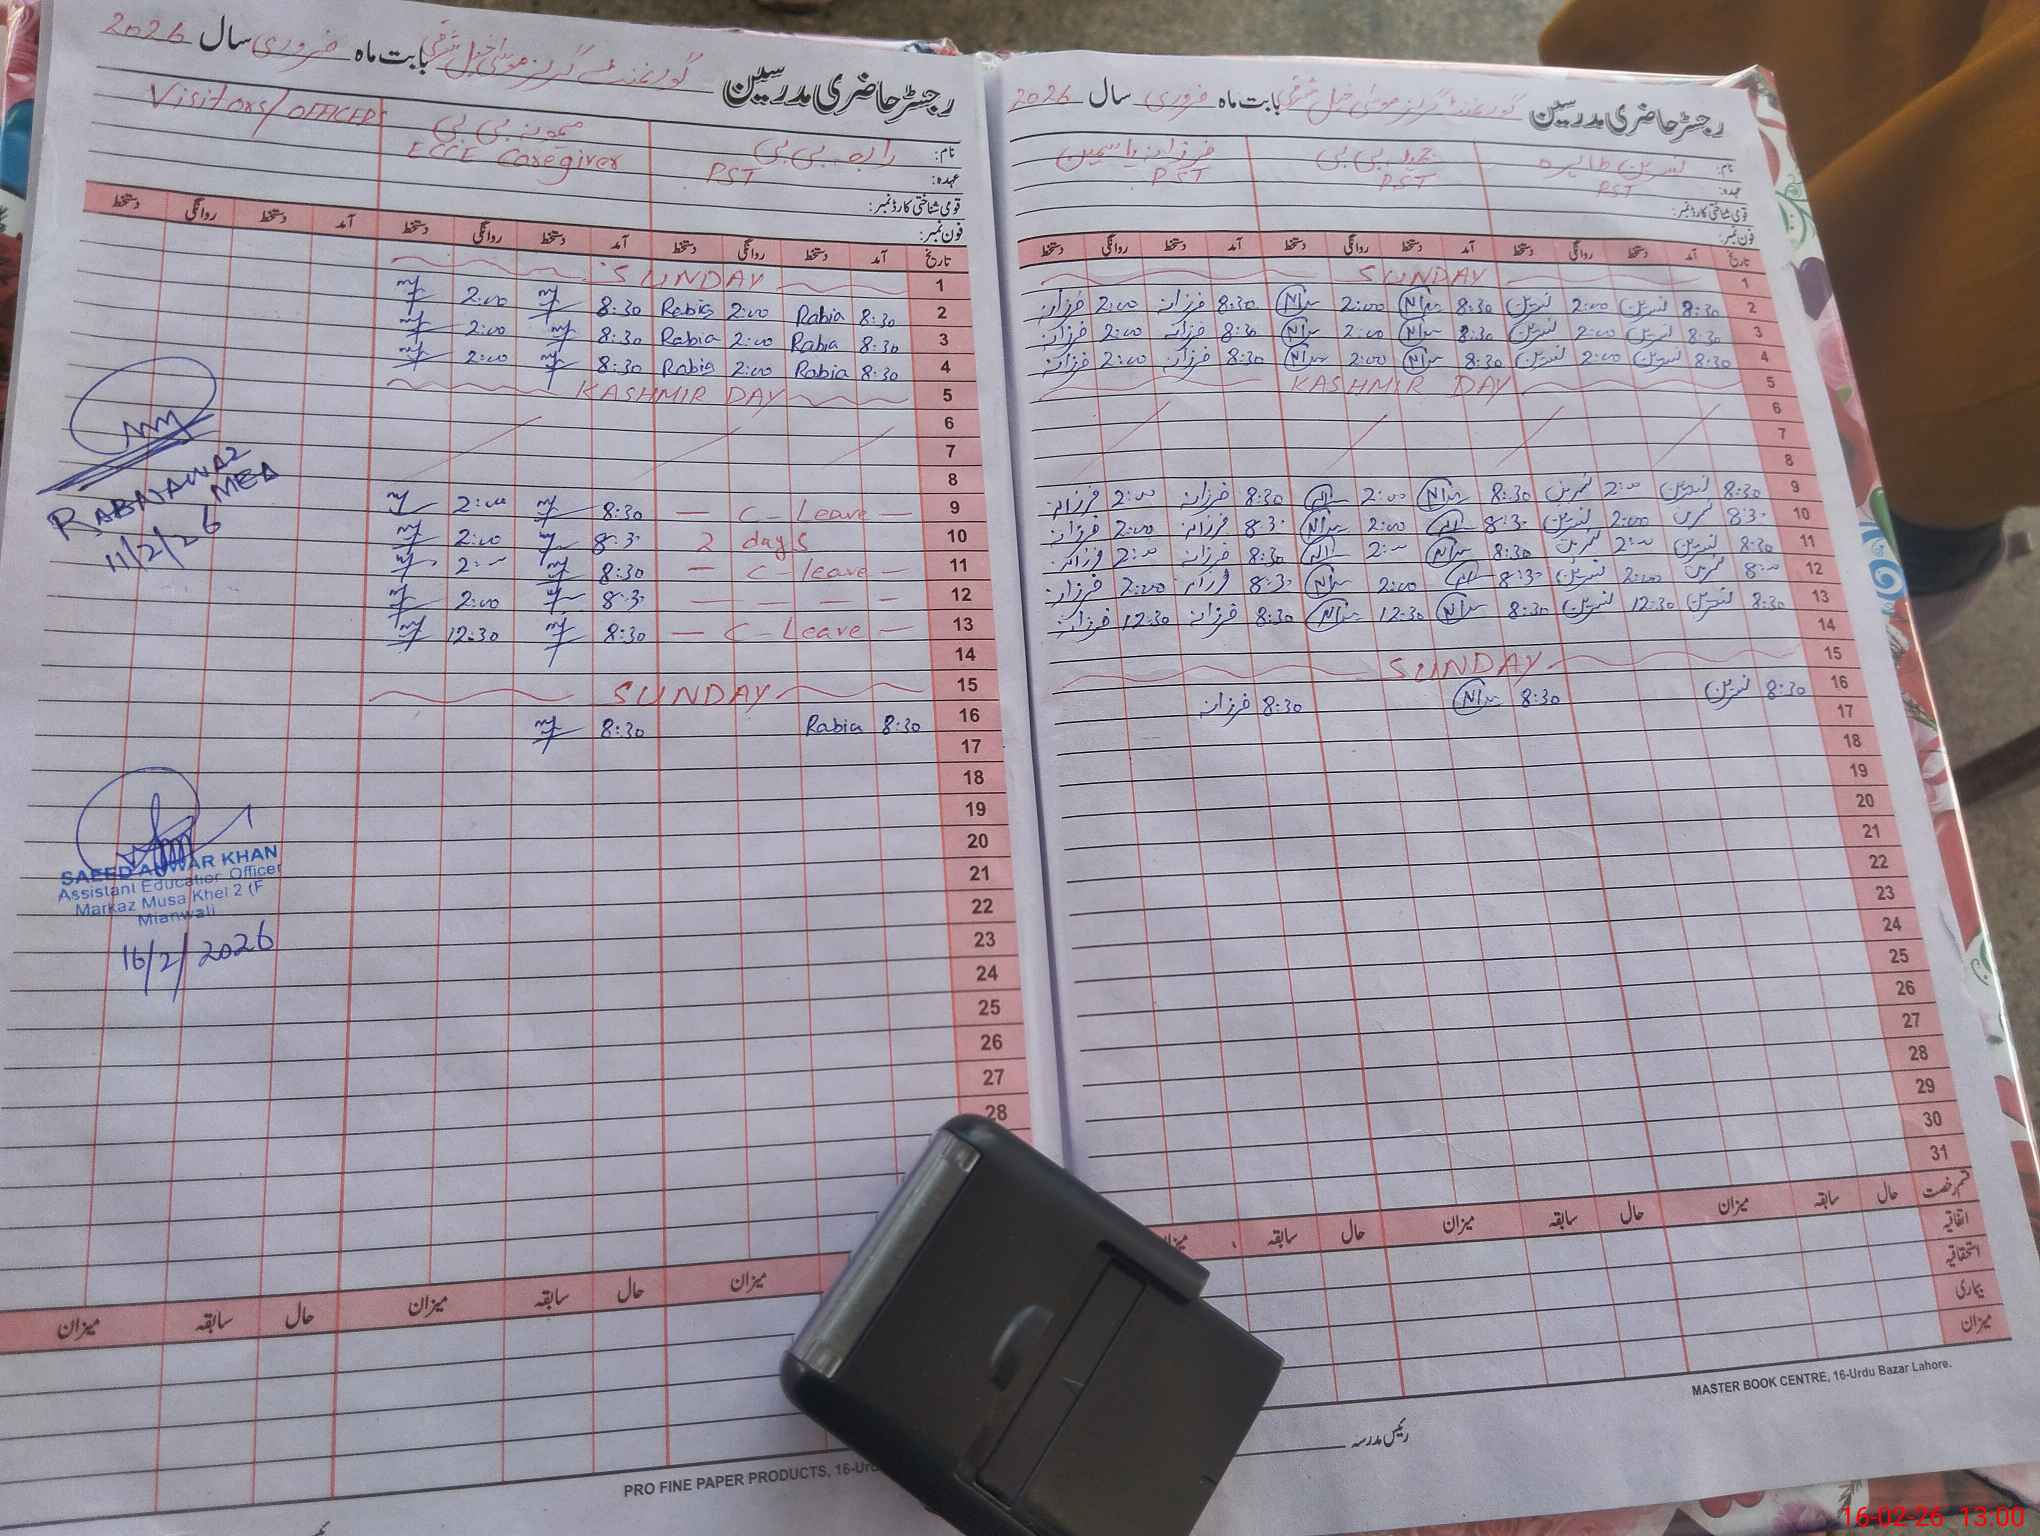 رجسٹر حاضری مدرسین گورنمنٹ گرلز موسیٰ خیل شرقی بابت ماہ فروری سال 2026
نام: رابعہ بی بی میمونہ بی بی Visitors/OFFICER
عہدہ: PST ECCE Caregiver
قومی شناختی کارڈ نمبر:
فون نمبر:
تاریخ آمد دستخط روانگی دستخط آمد دستخط روانگی دستخط آمد دستخط روانگی دستخط
1 SUNDAY
2 8:30 Rabia 2:00 Rabia 8:30 2:00
3 8:30 Rabia 2:00 Rabia 8:30 2:00
4 8:30 Rabia 2:00 Rabia 8:30 2:00
5 KASHMIR DAY
6
7
8
9 — C — Leave — 8:30 2:00
10 2 days 8:30 2:00
11 — C — leave — 8:30 2:00
12 — — — — 8:30 2:00
13 — C — Leave — 8:30 12:30
14
15 SUNDAY
16 8:30 Rabia 8:30
17
18
19
20
21
22
23
24
25
26
27
28
RABNAWAZ
MEA
11/2/26
SAEED ANWAR KHAN
Assistant Education Officer
Markaz Musa Khel 2 (F
Mianwali
16/2/2026
میزان حال سابقہ میزان حال سابقہ میزان
PRO FINE PAPER PRODUCTS, 16-Urdu
رجسٹر حاضری مدرسین گورنمنٹ گرلز موسیٰ خیل شرقی بابت ماہ فروری سال 2026
نام: نسرین طاہرہ بی بی فرزانہ یاسمین
عہدہ: PST PST PST
قومی شناختی کارڈ نمبر:
فون نمبر:
تاریخ آمد دستخط روانگی دستخط آمد دستخط روانگی دستخط آمد دستخط روانگی دستخط
1 SUNDAY
2 8:30 نسرین 2:00 نسرین 8:30 2:00 8:30 فرزانہ 2:00 فرزانہ
3 8:30 نسرین 2:00 نسرین 8:30 2:00 8:30 فرزانہ 2:00 فرزانہ
4 8:30 نسرین 2:00 نسرین 8:30 2:00 8:30 فرزانہ 2:00 فرزانہ
5 KASHMIR DAY
6
7
8
9 8:30 نسرین 2:00 نسرین 8:30 2:00 8:30 فرزانہ 2:00 فرزانہ
10 8:30 نسرین 2:00 نسرین 8:30 2:00 8:30 فرزانہ 2:00 فرزانہ
11 8:30 نسرین 2:00 نسرین 8:30 2:00 8:30 فرزانہ 2:00 فرزانہ
12 8:00 نسرین 2:00 نسرین 8:30 2:00 8:30 فرزانہ 2:00 فرزانہ
13 8:30 نسرین 12:30 نسرین 8:30 12:30 8:30 فرزانہ 12:30 فرزانہ
14
15 SUNDAY
16 8:30 نسرین 8:30 8:30 فرزانہ
17
18
19
20
21
22
23
24
25
26
27
28
29
30
31
قسم رخصت حال سابقہ میزان حال سابقہ میزان حال سابقہ میزان
اتفاقیہ
استحقاقیہ
بیماری
میزان
MASTER BOOK CENTRE, 16-Urdu Bazar Lahore.
رئیس مدرسہ
16-02-26 13:00